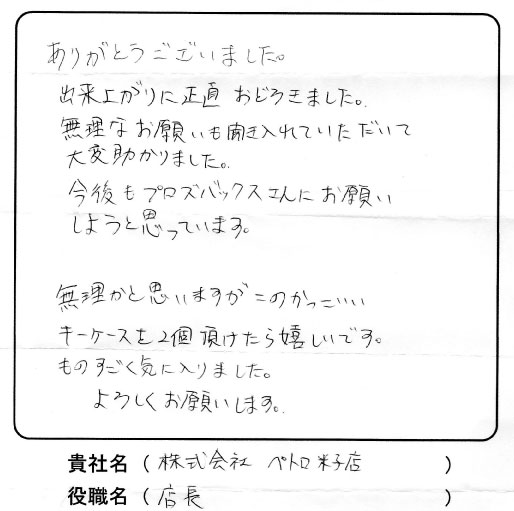 ありがとうございました。
出来上がりに正直 おどろきました。
無理なお願いも聞き入れていただいて
大変助かりました。
今後もプロズバックスさんにお願い
しようと思っています。
無理かと思いますがこのかっこいい
キーケースを2個頂けたら嬉しいです。
ものすごく気に入りました。
よろしくお願いします。
貴社名 ( 株式会社 ペトロ米子店 )
役職名 ( 店長 )